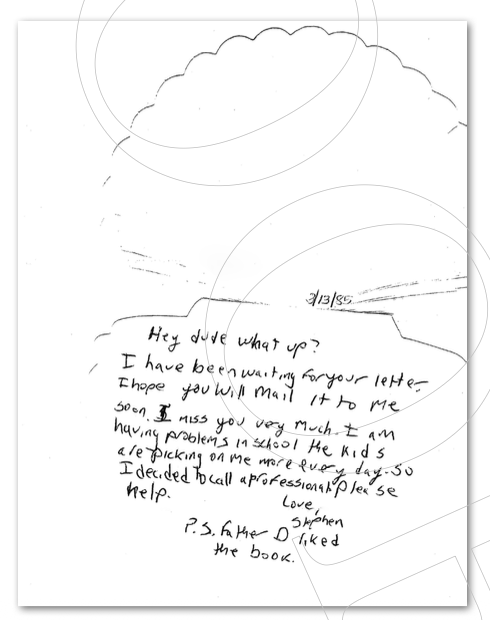 3/13/85
Hey dude what up?
I have been waiting for your letter
I hope you will mail it to me
soon. I miss you very much. I am
having problems in school the kids
are picking on me more every day. So
I decided to call a professional please
help.
Love,
Stephen
P.S. Father D liked
the book.